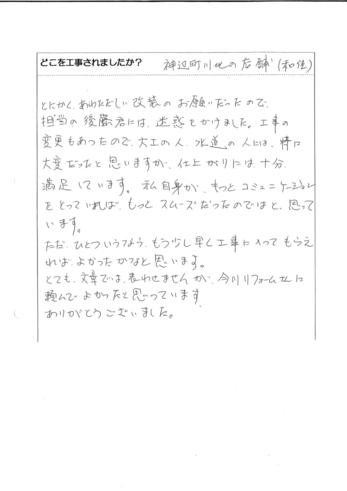 どこを工事されましたか？ 神辺町川北の店舗（和佳）
とにかく、あわただしい改装のお願いだったので、
担当の後藤君には、迷惑をかけました。工事の
変更もあったので、大工の人、水道の人には、特に
大変だったと思いますが、仕上がりには、十分
満足しています。私自身が、もっとコミュニケーション
をとっていれば、もっとスムーズだったのではと、思って
います。
ただ、ひとついうなら、もう少し早く工事に入ってもらえ
れば、よかったかなと思います。
とても、文章では、表わせませんが、今川リフォームさんに
頼んで、よかったと思っています。
ありがとうございました。